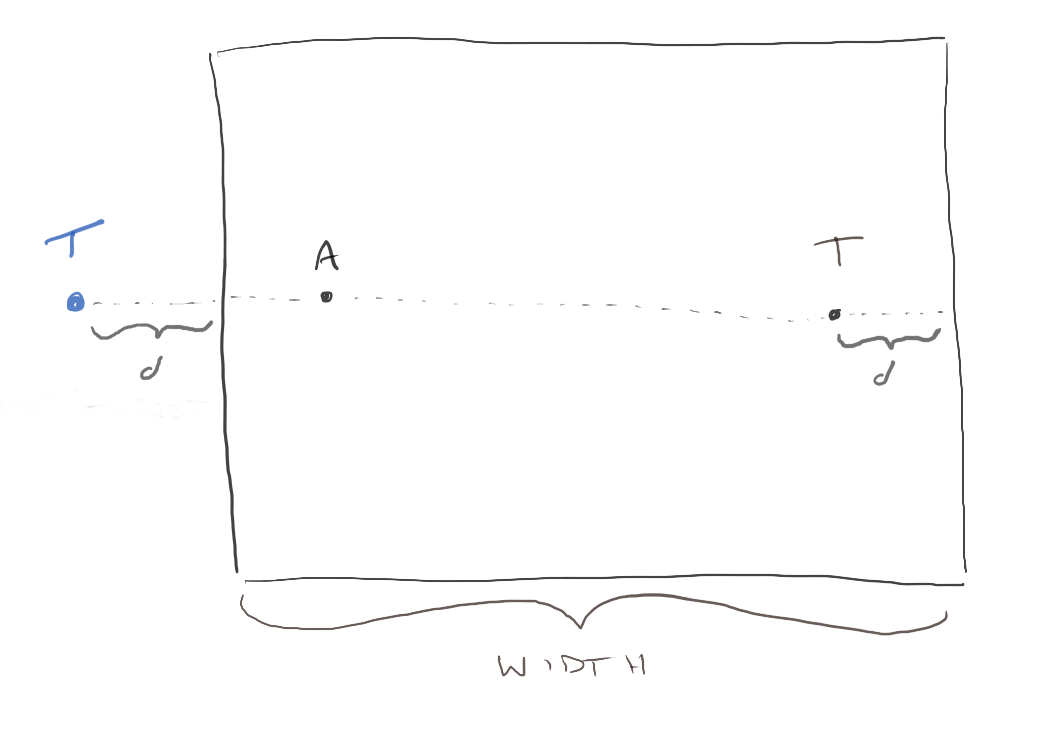 T
A
T
d
d
WIDTH